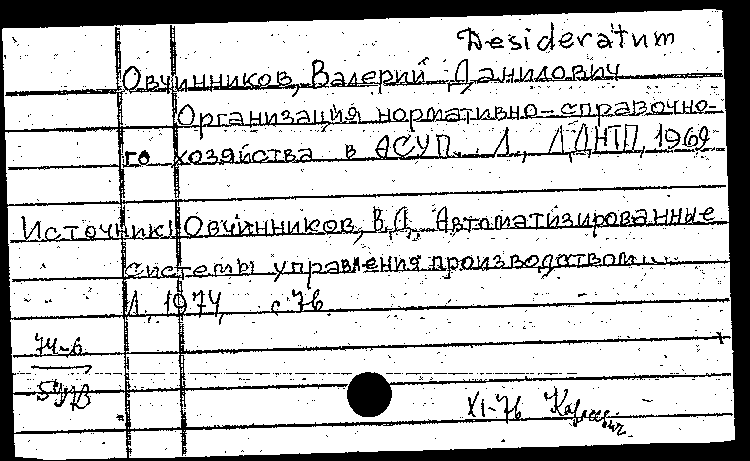 Desideratum
Овчинников, Валерий Данилович
Организация нормативно-справочно-
го хозяйства в АСУП. Л., ЛДНТП, 1969
Источник: Овчинников, В.Д. Автоматизированные
системы управления производством...
Л., 1974, с. 76.
74-6
XI-76